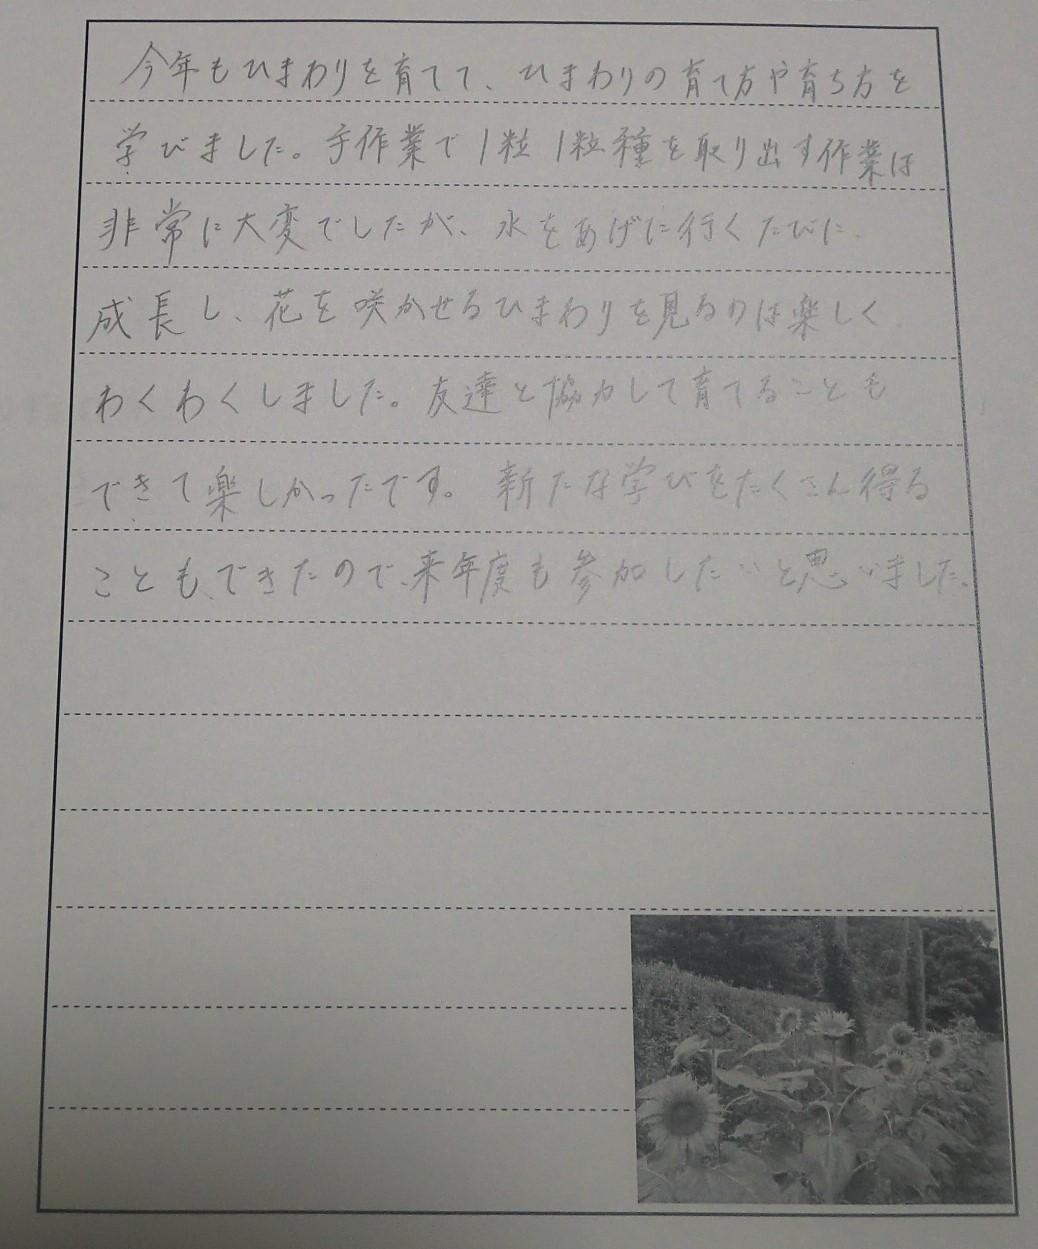 今年もひまわりを育てて、ひまわりの育て方や育ち方を
学びました。手作業で1粒1粒種を取り出す作業は
非常に大変でしたが、水をあげに行くたびに、
成長し、花を咲かせるひまわりを見るのは楽しく
わくわくしました。友達と協力して育てることも
できて楽しかったです。新たな学びをたくさん得る
こともできたので、来年度も参加したいと思いました。